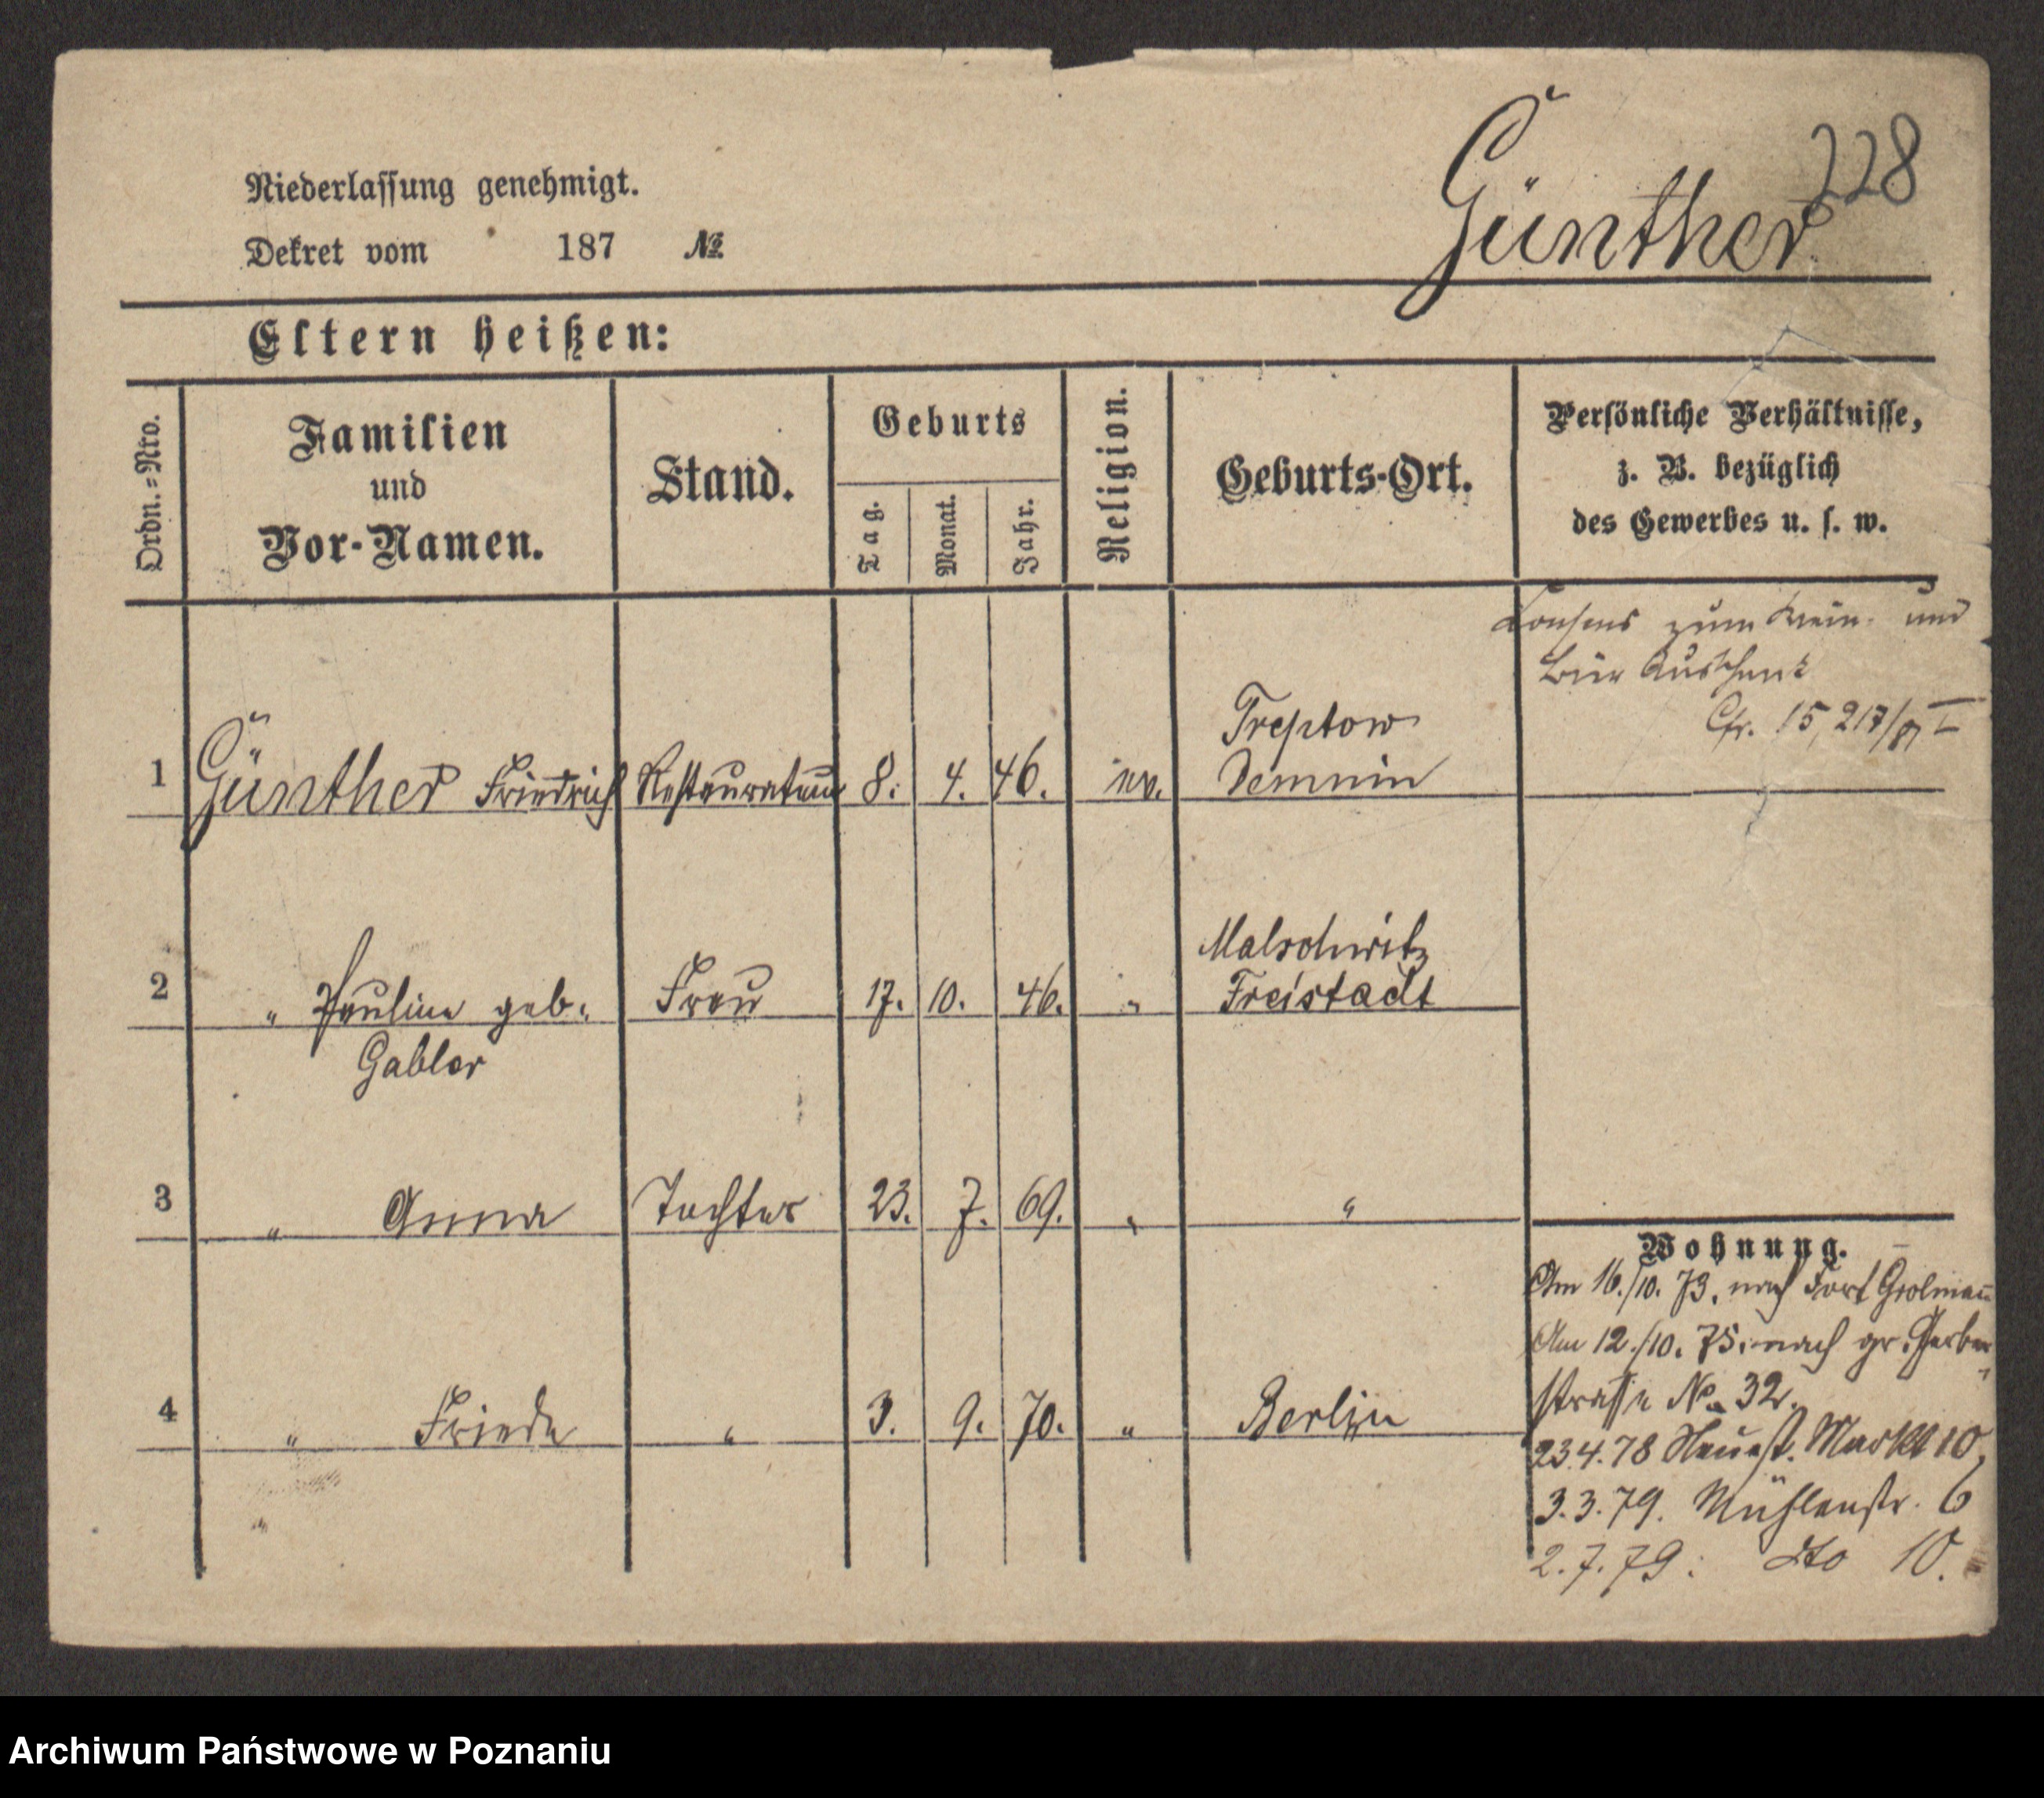 228
Günther
Niederlassung genehmigt.
Dekret vom 187 №
Eltern heißen:
Ordn.-Nro.
Familien
und
Vor-Namen.
Stand.
Geburts
Tag.
Monat.
Jahr.
Religion.
Geburts-Ort.
Persönliche Verhältnisse,
z. B. bezüglich
des Gewerbes u. s. w.
Consens zum Wein- und
Bier Ausschank
Cfr. 15,217/81 I
Treptow
1 Günther Friedrich Restaurateur 8. 4. 46. ev. Demmin
Malschwitz
2 " Pauline geb. Frau 17. 10. 46. " Freistadt
Gabler
3 " Anna Tochter 23. 7. 69. " "
Wohnung.
Am 16./10. 73. nach Fort Grolmann
Am 12./10. 75. nach gr. Gerber-
straße No. 32.
4 " Friede " 3. 9. 70. " Berlin
23.4.78 Neust. Markt 10,
3.3.79. Mühlenstr. 6
2.7.79: dto 10.
Archiwum Państwowe w Poznaniu